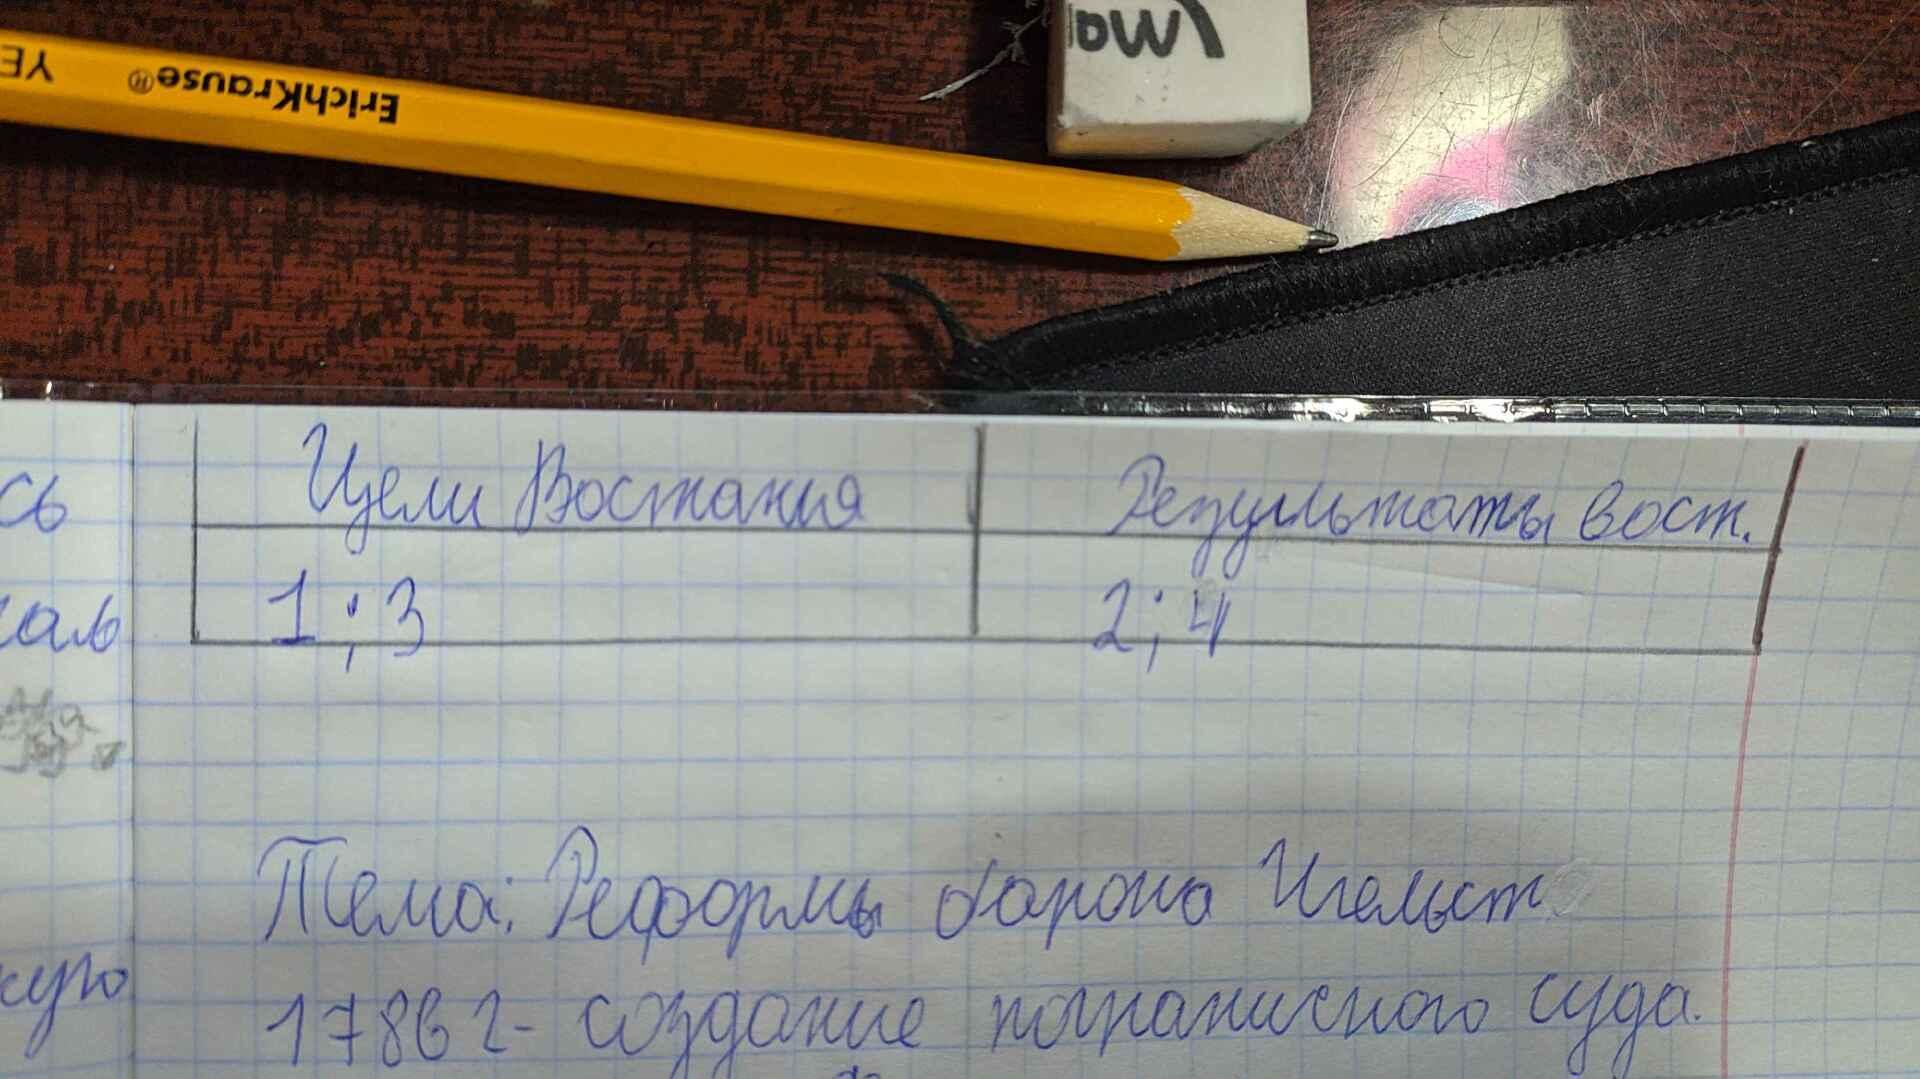 ErichKrause® YE
Цели Востания
Результаты вост.
1; 3
2; 4
сь
Тема: Реформы барона Игельст
1786 г- создание пограничного суда.